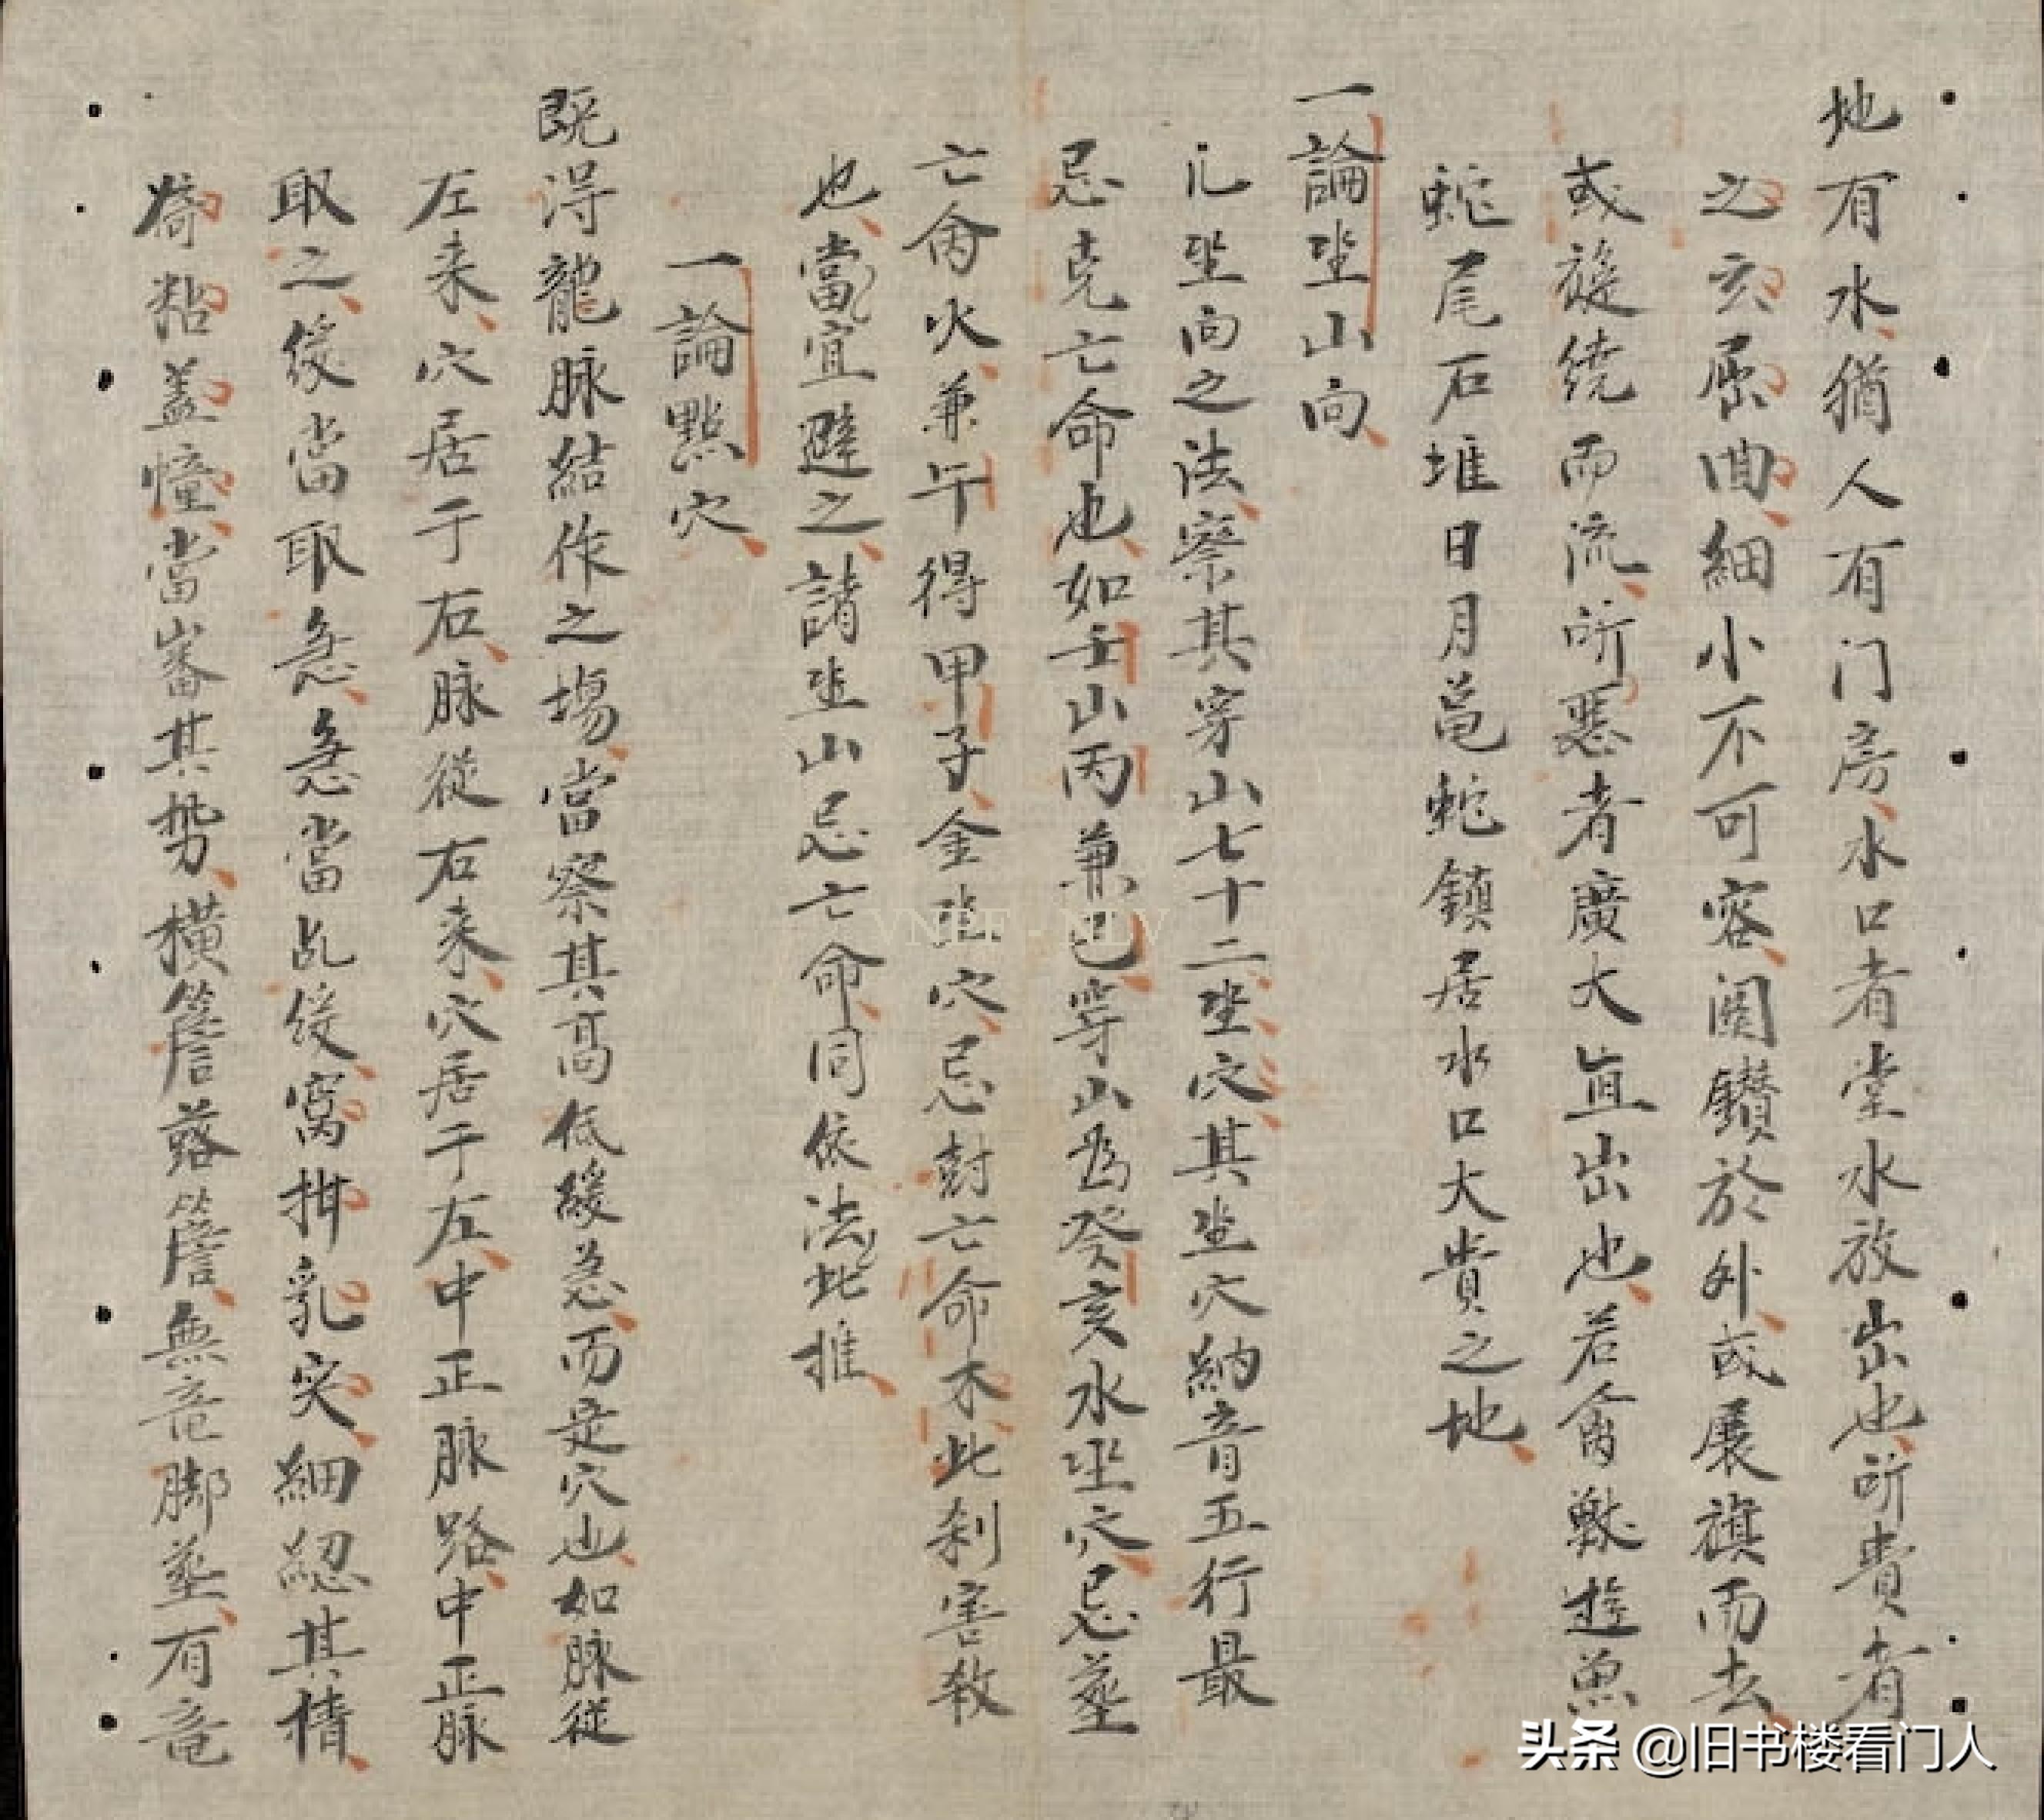 地有水猶人有门房水口者堂水放出也所貴者
之玄屈曲細小不可容闊鑚於外或展旗而去
或旋绕而流所惡者廣大直出也若禽獸遊魚
蛇尾石堆日月龟蛇鎮居水口大貴之地
一論坐山向
凡坐向之法察其穿山七十二坐穴其坐穴納音五行最
忌克亡命也如壬山丙兼巳穿山為癸亥水坐穴忌塟
亡命火兼午得甲子金坐穴忌封亡命木此刹害敎
也當宜避之諸坐山忌亡命同依法此推
一論點穴
既得龍脉結作之塲當察其高低緩急而是穴也如脉從
左来穴居于右脉從右来穴居于左中正脉路中正脉
取之緩當取急急當乩緩窩拑乳突細認其情
粘盖撞當審其势橫簷落簷無竜脚塟有竜
VNLT - NLV
头条 @旧书楼看门人